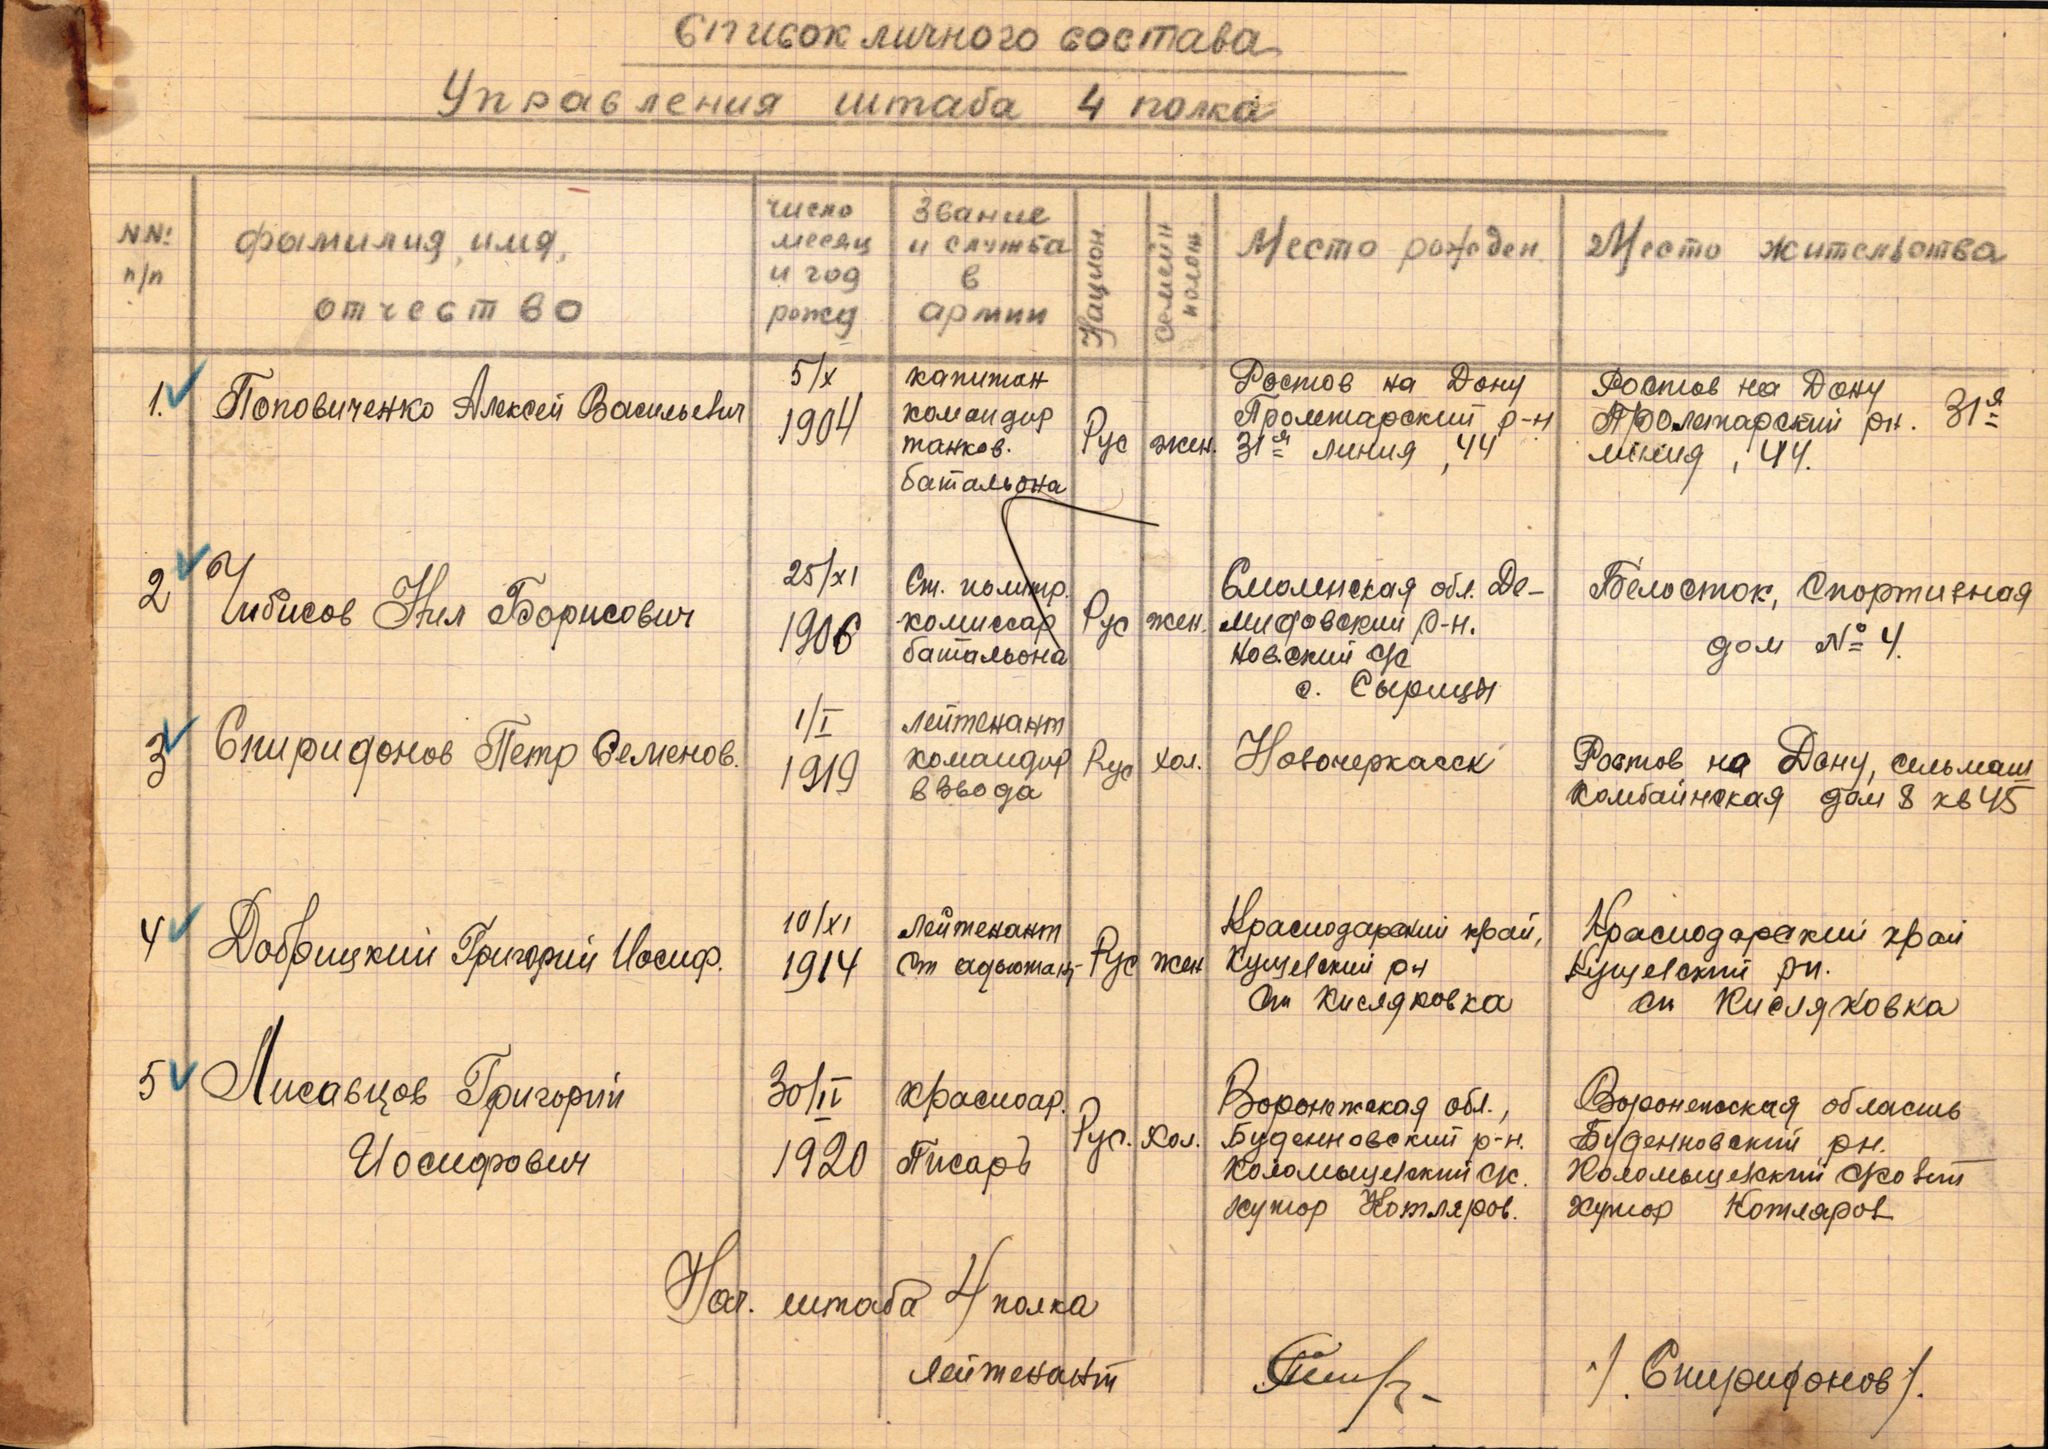 Список личного состава
Управления штаба 4 полка
NN: п/п
фамилия, имя, отчество
число месяц и год рожд
Звание и служба в армии
Национ
Семейн полож
Место рожден
Место жительства
1. Поповиченко Алексей Васильевич
5/X 1904
капитан
командир
танков.
батальона
Рус
жен.
Ростов на Дону
Пролетарский р-н
31я линия, 44
Ростов на Дону
Пролетарский рн. 31я
линия, 44.
2 Чибисов Нил Борисович
25/XI 1906
Ст. политр.
комиссар
батальона
Рус
жен.
Смоленская обл. Де-
мидовский р-н.
с. Сырицы
Белосток, Спортивная
дом № 4.
3 Спиридонов Петр Семенов.
1/I 1919
лейтенант
командир
взвода
Рус
хол.
Новочеркасск
Ростов на Дону, сельмаш
Комбайнская дом 8 кв 45
4 Добрицкий Григорий Иосиф.
10/XI 1914
лейтенант
Ст адьютант
Рус
жен
Краснодарский край,
Кущевский рн
Ст Кисляковка
Краснодарский край
Кущевский рн.
Ст Кисляковка
5 Лисавцов Григорий
Иосифович
30/II 1920
красноар.
Писарь
Рус.
Хол.
Воронежская обл.,
Буденновский р-н.
Коломыцевский с/с.
хутор Котляров.
Воронежская область
Буденновский рн.
Коломыцевский с/совет
Хутор Котляров
Нач. штаба 4 полка
лейтенант
/. Спиридонов /.